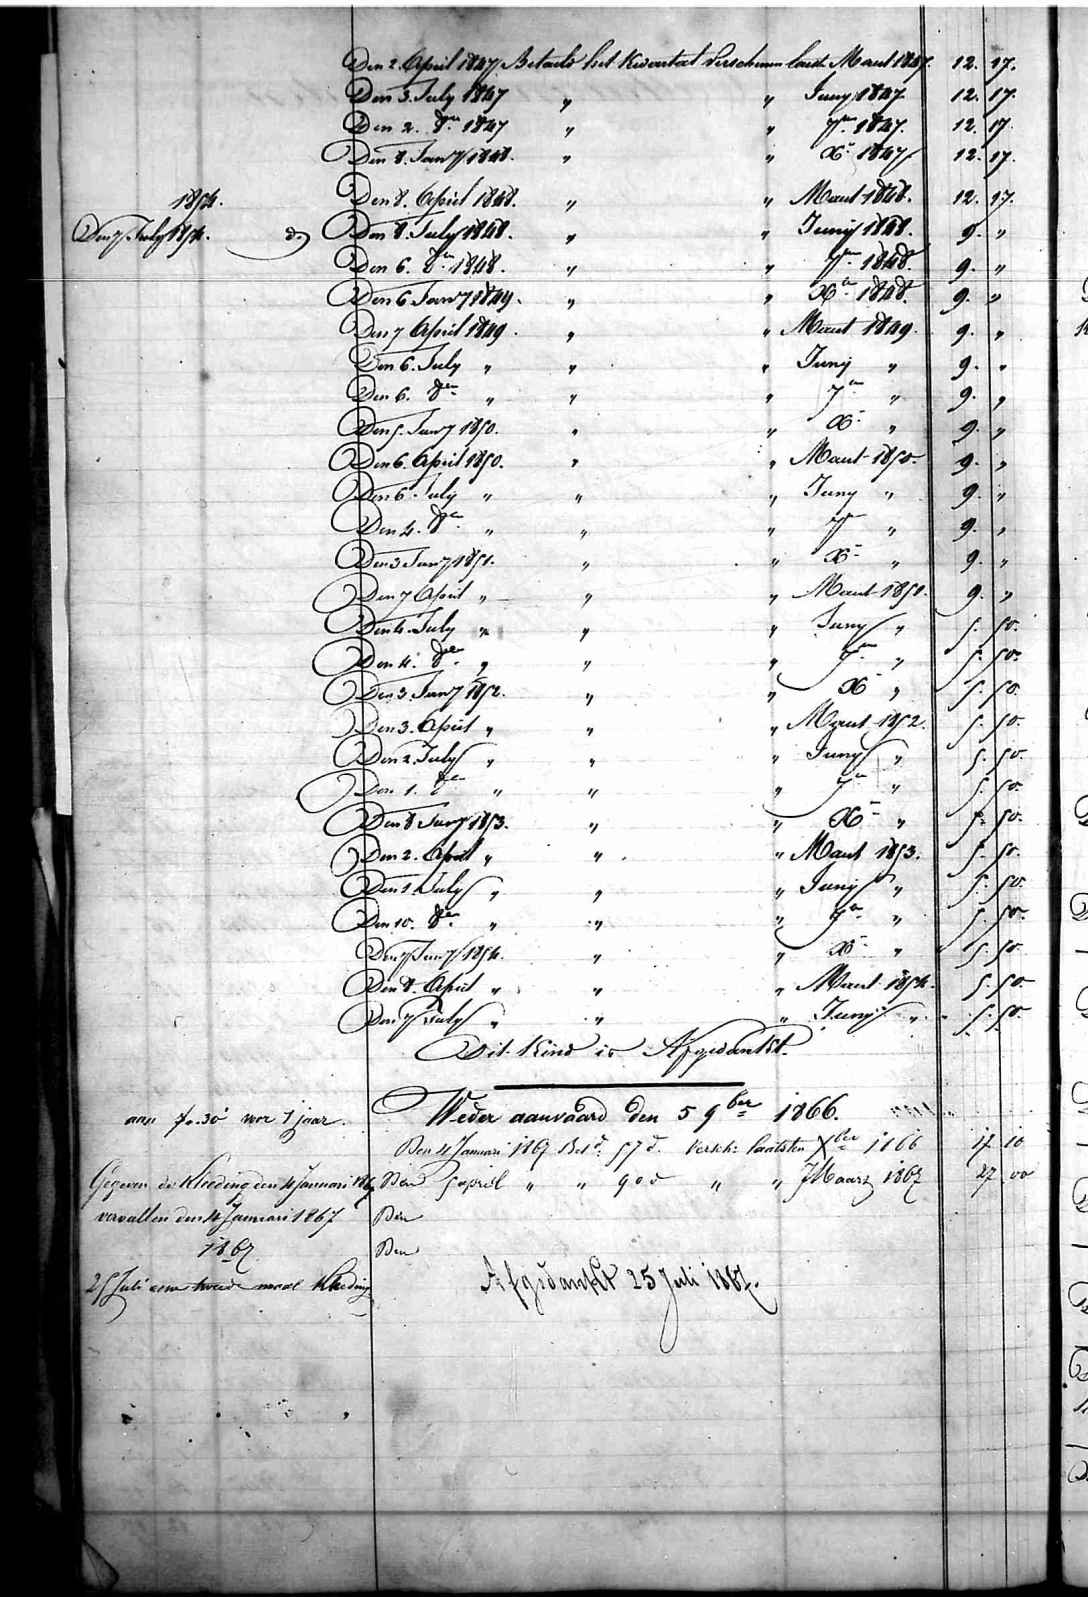 Den 2. April 1847 Betaeld het Kwartael verschenen laest Maert 1847. 12. 17.
Den 3. July 1847 " " Juny 1847 12. 17.
Den 2. 8er 1847 " " 7er 1847. 12. 17
Den 8. Jany 1848. " " Xr 1847 12. 17.
1854. Den 8. April 1848. " " Maert 1848. 12. 17.
Den 7 July 1854. d. Den 8. July 1848. " " Juny 1848. 9. "
Den 6. 8er 1848. " " 7er 1848. 9. "
Den 6 Jany 1849. " " Xer 1848. 9. "
Den 7 April 1849. " " Maert 1849. 9. "
Den 6. July " " " Juny " 9. "
Den 6. 8er " " " 7er " 9. "
Den 5. Jany 1850. " " Xr " 9. "
Den 6. April 1850. " " Maert 1850. 9. "
Den 6 July " " " Juny " 9. "
Den 4. 8er " " " 7er " 9. "
Den 3 Jany 1851. " " Xr " 9. "
Den 7 April " " " Maert 1851. 9. "
Den 4. July " " " Juny " 5. 50.
Den 4. 8er " " " 7er " 5. 50.
Den 3. Jany 1852. " " Xr " 5. 50.
Den 3. April " " " Maert 1852. 5. 50.
Den 2. July " " " Juny " 5. 50.
Den 1. 8er " " " 7er " 5. 50.
Den 8 Jany 1853. " " Xr " 5. 50.
Den 2. April " " " Maert 1853. 5. 50.
Den 1. July " " " Juny " 5. 50.
Den 10. 8er " " " 7er " 5. 50.
Den 7 Jany 1854. " " Xr " 5. 50.
Den 8. April " " " Maert 1854. 5. 50.
Den 7 July " " " Juny " 5. 50.
Dit Kind is Afgedankt.
aen f. 30 voor 1 jaar. Weder aanvaard den 5 9ber 1866.
Den 4 Januari 1867 Betd 57 d. Versch. laatsten Xber 1866 17 10
Gegeven de Kleeding den 4 Januari 1867 Den 5 april " " 90 d " " Maart 1867 27 00
vervallen den 4 Januari 1867 Den
1867 Den
25 Juli eene tweede mael Kleeding Afgedankt 25 Juli 1867.